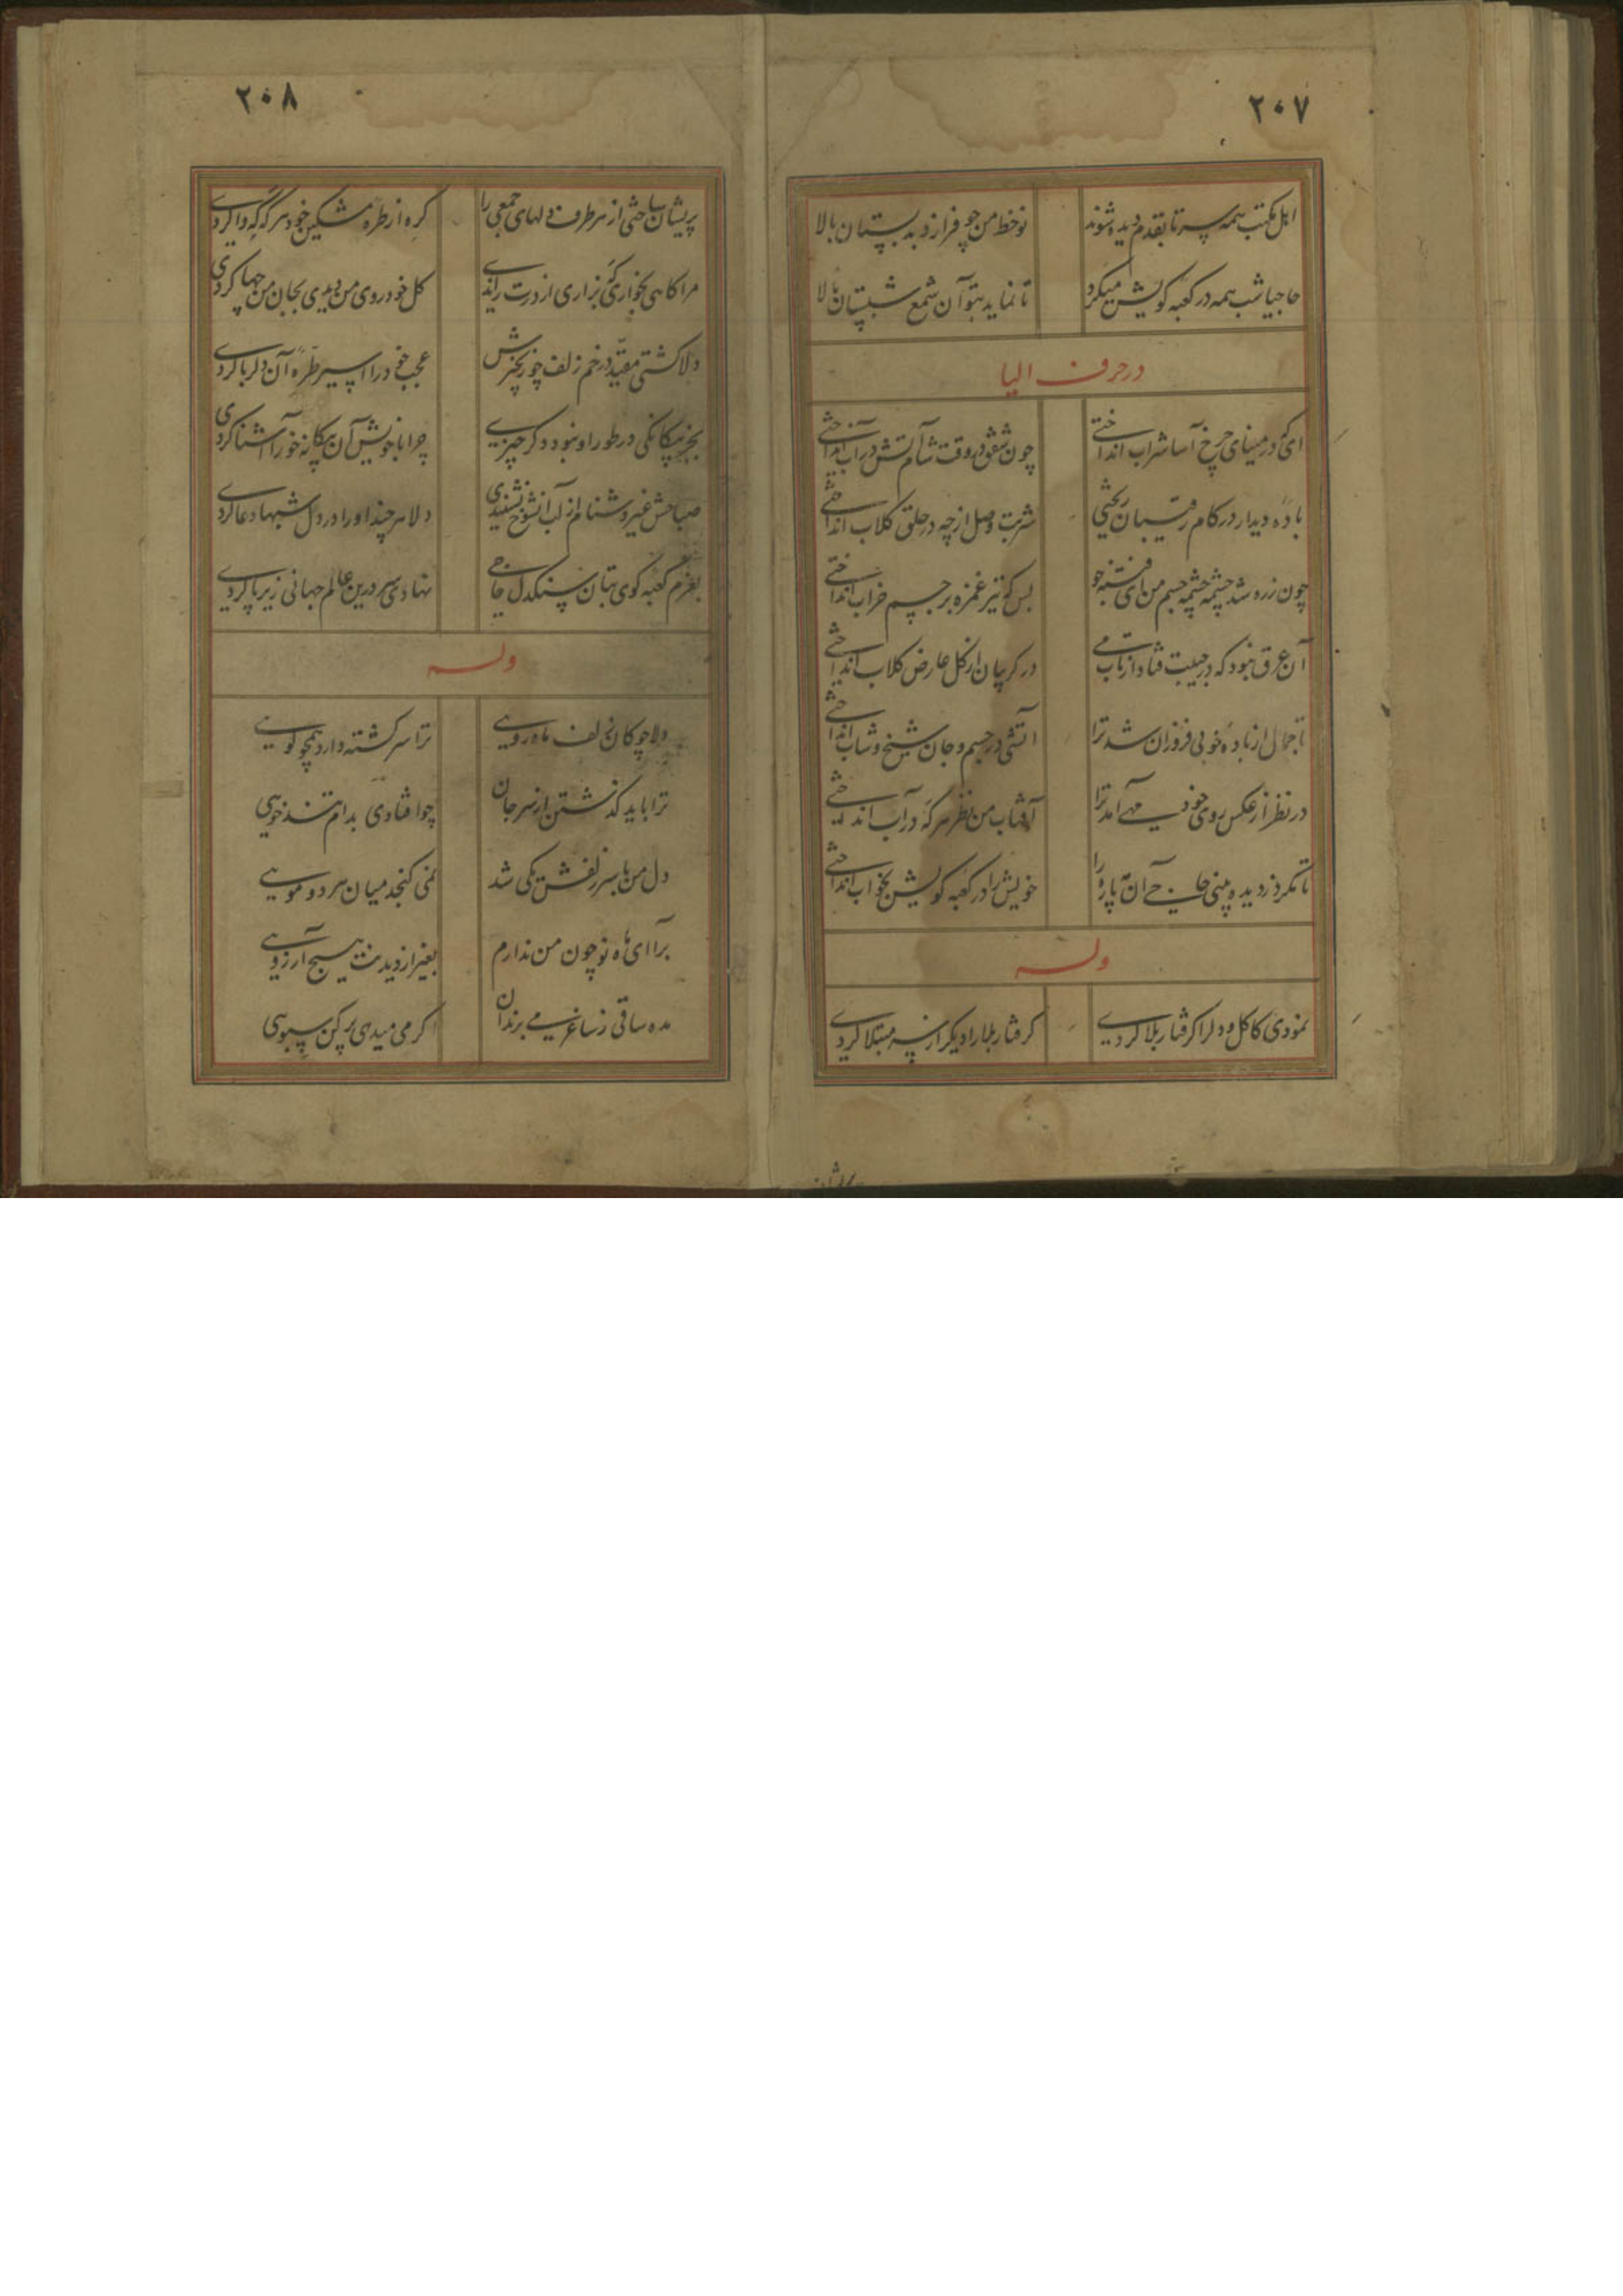 ٢٠٧
اهل مکتب همه سر تا بقدم دیده شوند نوخط من چو فرازد بدبستان بالا
حاجیا شب همه در کعبه کویش میکرد تا نماید بتو آن شمع شبستان بالا
در حرف الیا
ای که در مینای چرخ آسا شراب انداختی چون شفق در وقت شام آتش در آب انداختی
باده دیدار در کام رقیبان ریختی شربت وصل از چه در حلق کلاب انداختی
چون زره شد چشمه چشمه جسم من ای فتنه جو بس که تیر غمزه بر جسم خراب انداختی
آن عرق نبود که در جیبت فتاد از تاب می در کریبان از کل عارض کلاب انداختی
تا جمال از باده خوبی فروزان شد ترا آتشی در جسم و جان شیخ و شاب انداختی
در نظر از عکس روی خود مهی آمد ترا آفتاب من نظر هر که در آب انداختی
تا مکر دزدیده بینی حاجی آن مه پاره را خویش را در کعبه کویش بخواب انداختی
وله
نمودی کاکل و دلرا کرفتار بلا کردی کرفتار بلا را دیکر از نو مبتلا کردی
٢٠٨
پریشان ساختی از هر طرف دلهای جمعی را کره از طره مشکین خود هر که که وا کردی
مرا کاهی بخواری که بزاری از درت راندی کل خودروی من دیدی بجان من چها کردی
دلا کشتی مقید در خم زلف چو زنجیرش عجب خود را اسیر طره آن دلربا کردی
بجز بیکانکی در طور او نبود دکر چیزی چرا با خویش آن بیکانه خو را آشنا کردی
صباحش غیر دشنام از لب آنشوخ نشنیدی دلا هر چند او را در دل شبها دعا کردی
بعزم کعبه کوی بتان سنکدل حاجی نهادی سر درین عالم جهانی زیر پا کردی
وله
دلا چوکان زلف ماه رویی ترا سر کشته دارد همچو کویی
ترا باید کذشتن از سر جان چو افتادی بدام تند خویی
دل من با سر زلفش یکی شد نمی کنجد میان هر دو مویی
برآ ای ماه نو چون من ندارم بغیر از دیدنت هیچ آرزویی
مده ساقی ز ساغر می برندان اکر می میدهی پر کن سبویی